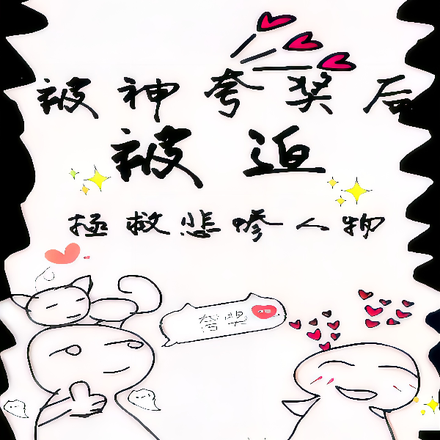 被神夸奖后
被迫
拯救悲惨人物
夸奖